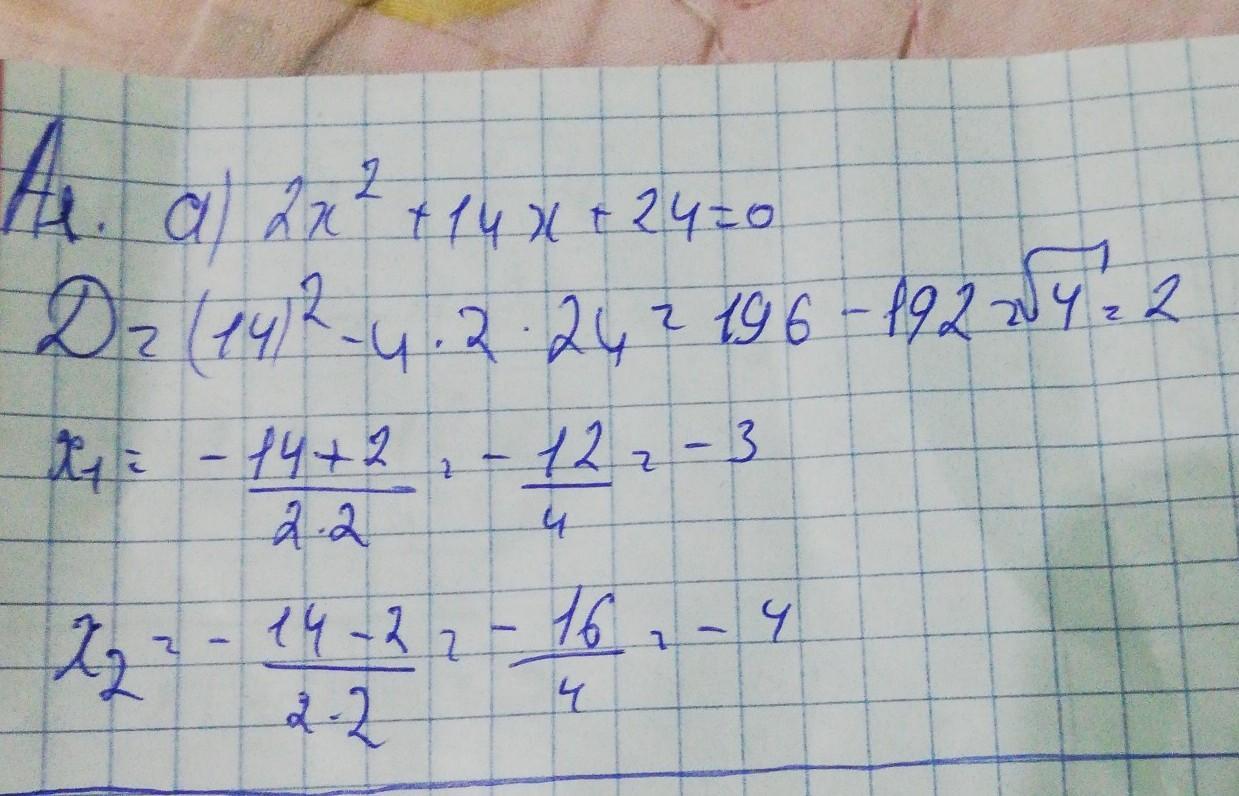 A1. а) 2x² + 14x + 24 = 0
D = (14)² - 4 · 2 · 24 = 196 - 192 = √4 = 2
x₁ = - 14+2/2·2 = - 12/4 = - 3
x₂ = - 14-2/2·2 = - 16/4 = - 4